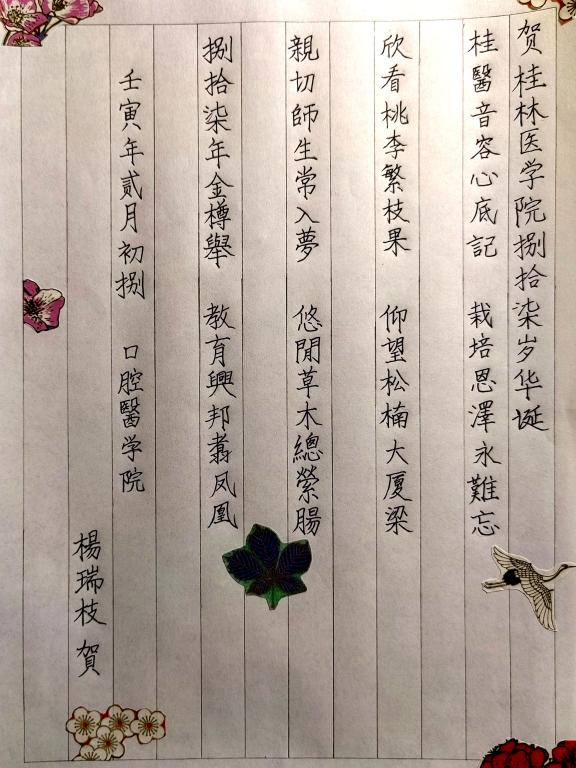 贺桂林医学院捌拾柒岁华诞
桂醫音容心底記 栽培恩澤永難忘
欣看桃李繁枝果 仰望松楠大厦梁
親切師生常入夢 悠閒草木總縈腸
捌拾柒年金樽舉 教育興邦翥凤凰
壬寅年貳月初捌 口腔醫学院
楊瑞枝 賀